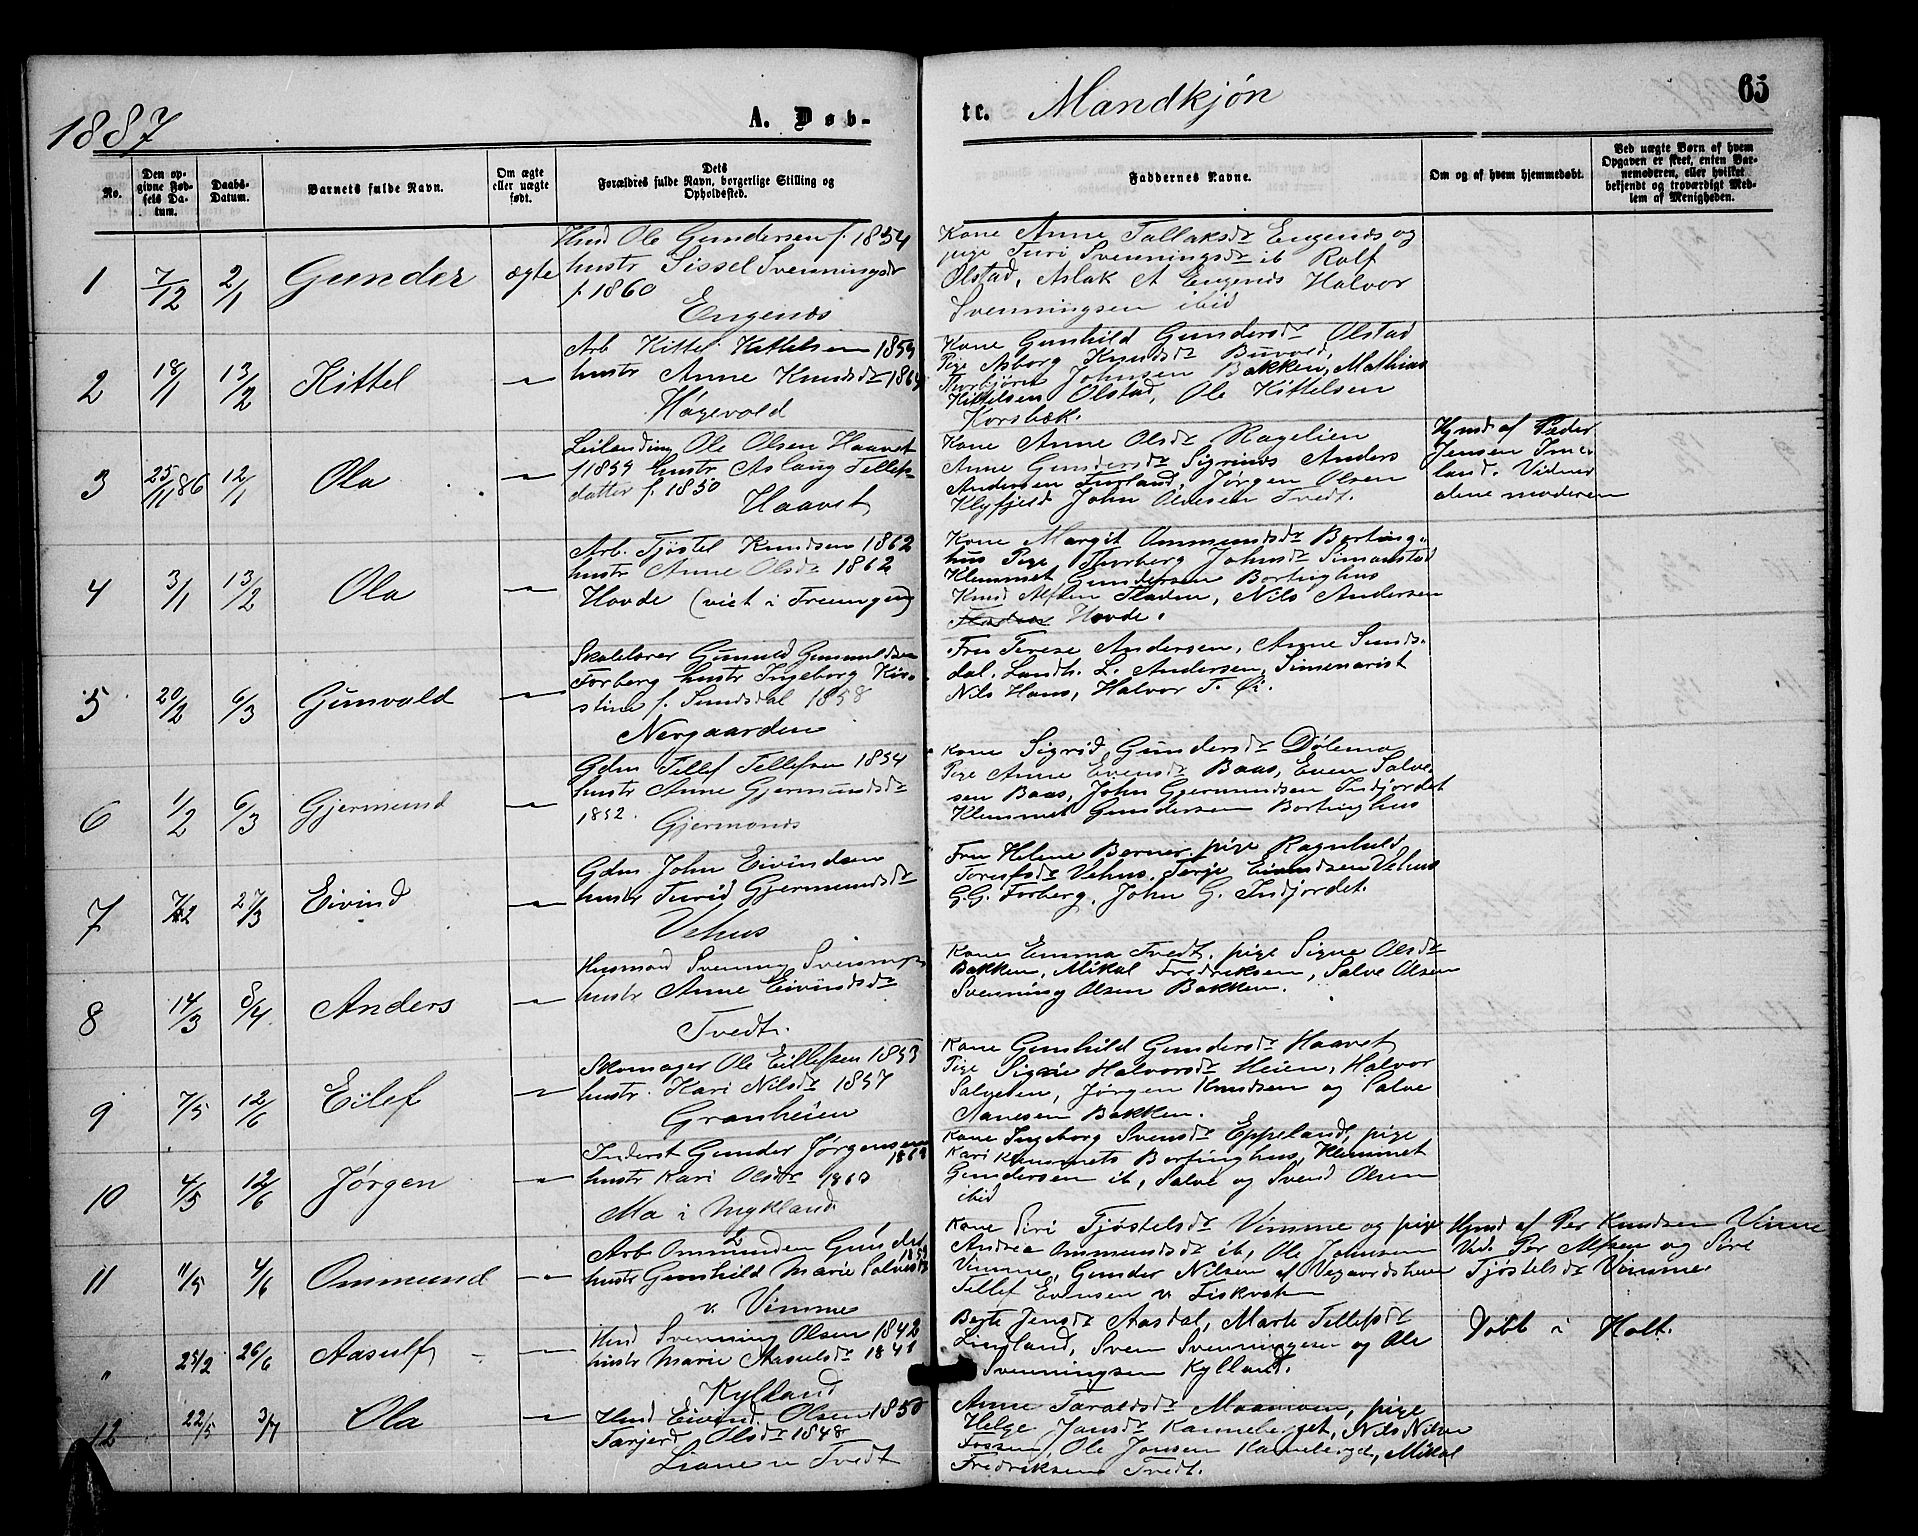 1887
A. Døb-
te. Mandkjøn
65
No.
Den op-
givne Fød-
sels Da-
tum.
Daabs-
Datum.
Barnets fulde Navn.
Om ægte
eller uægte
født.
Dets
Forældres fulde Navn, borgerlige Stilling og
Opholdssted.
Faddernes Navne.
Om og af hvem hjemmedøbt.
Ved uægte Børn af hvem
Opgaven er skeet, enten Bar-
nemoderen, eller hvilket
bekjendt og troværdigt Med-
lem af Menigheden.
1 7/12 2/1 Gunder ægte
Husd Ole Gundersen f. 1854
hustr Sissel Svenningsdr
f. 1860
Engenæs
Kone Anne Tallaksdr Engenæs og
pige Turi Svenningsdr ib Rolf
Olstad, Aslak A Engenæs Halvor
Svenningsen ibid
2 18/1 13/2 Kittel —
Arb Kittel Kittelsen 1859
hustr Anne Knudsdr 1864
Høgevold
Kone Gunhild Gundersdr Olstad
Pige Asborg Knudsdr Buvold,
Thorbjørn Johnsen Bakken, Mathias
Kittelsen Olstad, Ole Kittelsen
Korsbæk.
3 25/11 86 12/1 Ola —
Leilænding Ole Olsen Haavet
f 1859 hustr Aslaug Tellefs-
datter f. 1850
Haavet
Kone Anne Olsdr Ragelien
Anne Gundersdr Sigrinæs Anders
Andersen Furland, Jørgen Olsen
Klyfjeld John Olsen Tvedt.
Hjmd af Peder
Jensen
land. Vidner
alene moderen
4 3/1 13/2 Ola —
Arb. Tjøstel Knudsen 1862
hustr Anne Olsdr 1862
Hovde (viet i Treungen)
Kone Margit Ommundsdr Borting-
hus Pige Thorberg Johnsdr Simonstad
Klemmet Gundersen Bortinghus
Knud Alfsen Fladen, Nils Andersen
Fladen Hovde.
5 20/2 6/3 Gunvald —
Skolelærer Gunuld Gunuldsen
Forberg hustr Ingeborg Kir-
stine f. Sundsdal 1858
Nergaarden
Fru Terese Andersen, Anne Sunds-
dal, Landh. L. Andersen, Simenarist
Nils Hans, Halvor T. Øi.
6 1/2 6/3 Gjermund —
Gdm Tellef Tellefsen 1854
hustr Anne Gjermundsdr
1852.
Gjermonæs
Kone Sigrid Gundersdr Dølemo
Pige Anne Evensdr Baas, Even Salve-
sen Baas, John Gjermundsen Indjordet
Klemmet Gundersen Bortinghus
7 7/2 27/3 Eivind —
Gdm John Eivindsen
hustr Turid Gjermundsdr
Vehus
Fru Helene Berner, pige Ragnhild
Torufsdr Vehus. Terje Eivindsen Vehus
G.G. Forberg, John G. Indjordet.
8 14/3 8/4 Anders —
Husmand Svenning
hustr Anne Eivindsdr
Tvedt.
Kone Emma Tvedt, pige Signe Olsdr
Bakken, Mikal Fredriksen, Salve Olsen
Svenning Olsen Bakken.
9 7/5 12/6 Eilef —
Skomager Ole Eillefsen 1853
hustr. Kari Nilsdr 1857
Granheien
Kone Gunhild Gundersdr Haavet
Pige Signe Halvorsdr Heien, Halvor
Salvesen, Jørgen Knudsen og Salve
Aanesen Bakken.
10 4/5 12/6 Jørgen —
Inderst Gunder Jørgensen
hustr Kari Olsdr 1860
Mo i Mykland
Kone Ingeborg Svensdr Eppeland, pige
Kari Klemmets Bortinghus, Klemmet
Gundersen ib, Salve og Svend Olsen
ibid
11 11/5 4/6 Ommund —
Arb
hustr Gunhild Marie
v. Vimme
Kone Siri Tjøstelsdr Vimme og pige
Andrea Ommundsdr ib, Ole Johnsen
Vimme, Gunder Nilsen af Vegaardsheien
Tellef Evensen v. Fiskvatn
Hjmd af Per Knudsen Vimme
Vid. Per Alfsen og Sire
Tjøstelsdr Vimme.
" 25/2 26/6 Aasulf —
Husd Svenning Olsen 1842
hustr Marie Aasulsdr
Kylland
Berte Jensdr Aasdal, Marte Tellefsdr
Lindland, Sven Svenningsen og Ole
Svenningsen Kylland.
Døbt i Holt.
12 22/5 3/7 Ola —
Husd Eivind Olsen 1850
Tarjerd Olsdr 1848
Liane u Tvedt
Anne Taraldsdr Moamoen, pige
Helge Jansdr Kanneberget, Nils Nilsen
Fossen, Ole Jonsen Kanneberget, Mikal
Fredriksen Tvedt.